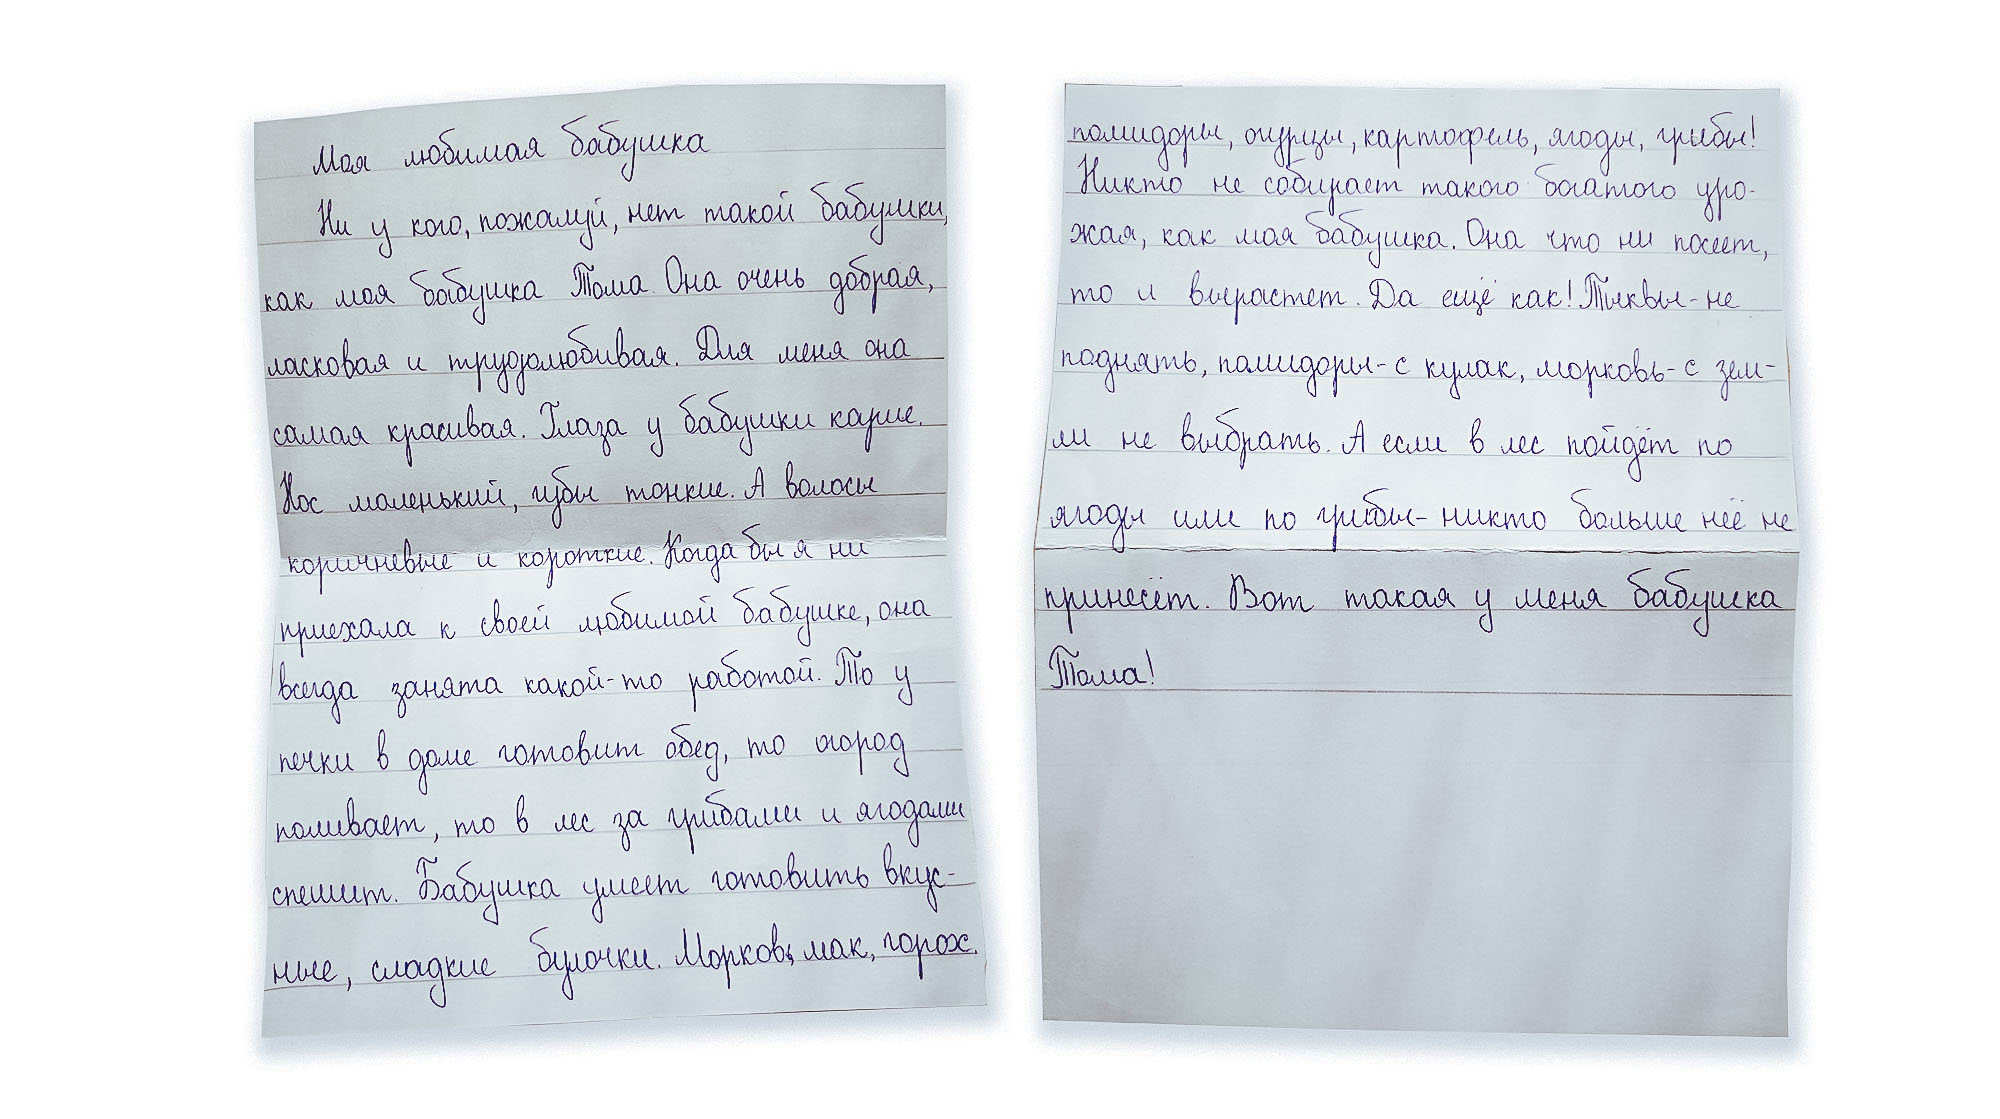 Моя любимая бабушка
Ни у кого, пожалуй, нет такой бабушки,
как моя бабушка Тома. Она очень добрая,
ласковая и трудолюбивая. Для меня она
самая красивая. Глаза у бабушки карие.
Нос маленький, губы тонкие. А волосы
коричневые и короткие. Когда бы я ни
приехала к своей любимой бабушке, она
всегда занята какой-то работой. То у
печки в доме готовит обед, то огород
поливает, то в лес за грибами и ягодами
спешит. Бабушка умеет готовить вкус-
ные, сладкие булочки. Морковь, мак, горох.
помидоры, огурцы, картофель, ягоды, грибы!
Никто не собирает такого богатого уро-
жая, как моя бабушка. Она что ни посеет,
то и вырастет. Да ещё как! Тыквы - не
поднять, помидоры - с кулак, морковь - с зем-
ли не выбрать. А если в лес пойдёт по
ягоды или по грибы - никто больше неё не
принесёт. Вот такая у меня бабушка
Тома!